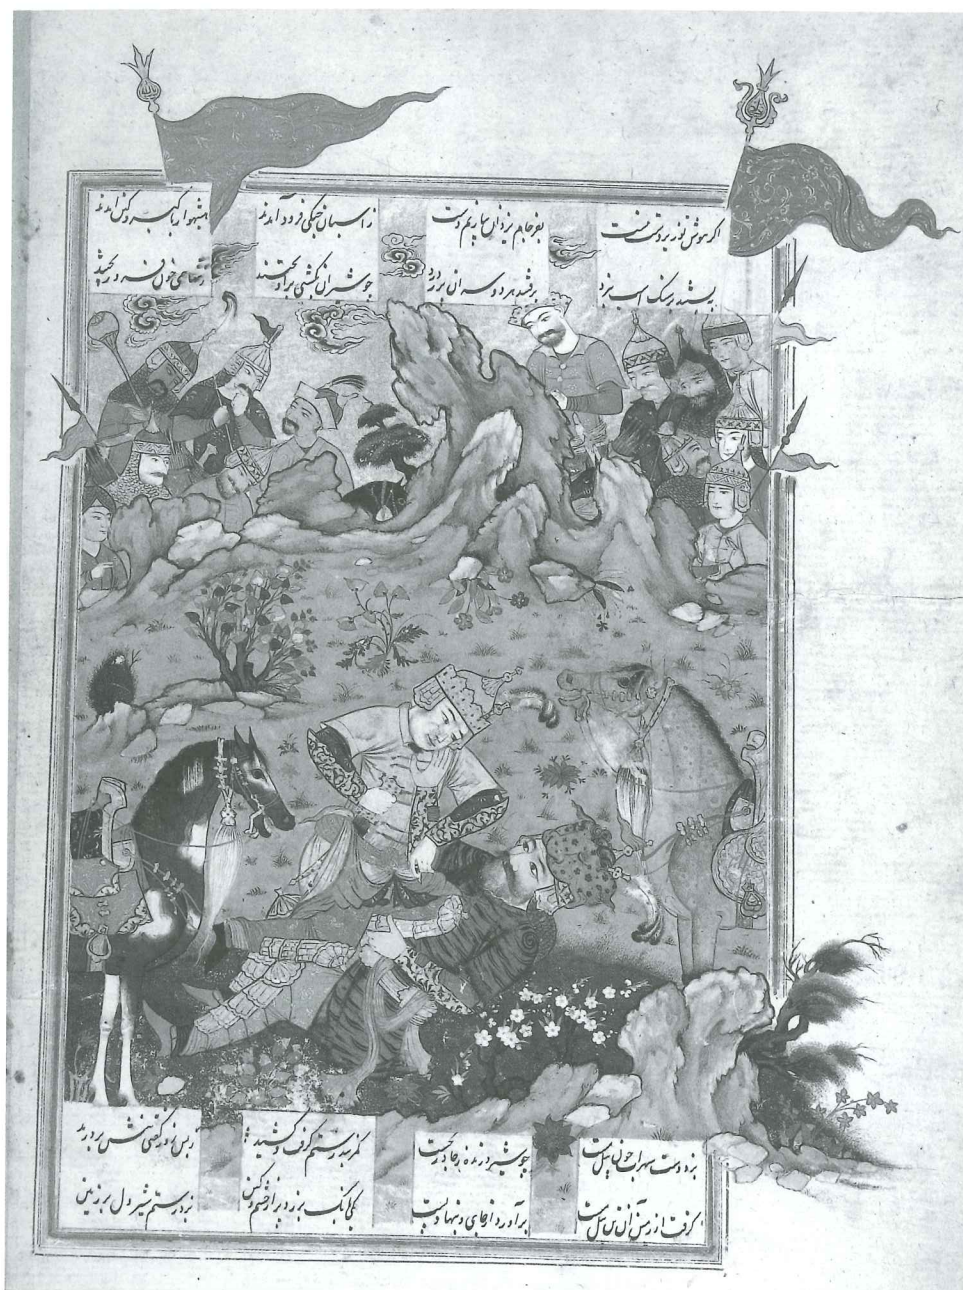 اگر هوش تو زیر دست منست بفرجام یزدان بیازیم دست ز اسبان جنگی فرود آمدند هشیوار با کبر و آمدند
ببستند بر سنگ اسب نبرد برفتند هر دو سران پر ز درد چو شیران بکشتی برآویختند ز تنها خوی خون ریختند
بزد دست سهراب چون پیل مست چو شیر دمنده ز جا در بجست کمربند رستم گرفت و کشید ز بس زور گفتی زمین بر درید
گرفت از زمین آن تن پیل مست برآورد از جای و بنهاد پست یکی بانگ برزد پر از خشم و کین بزد رستم شیر دل بر زمین